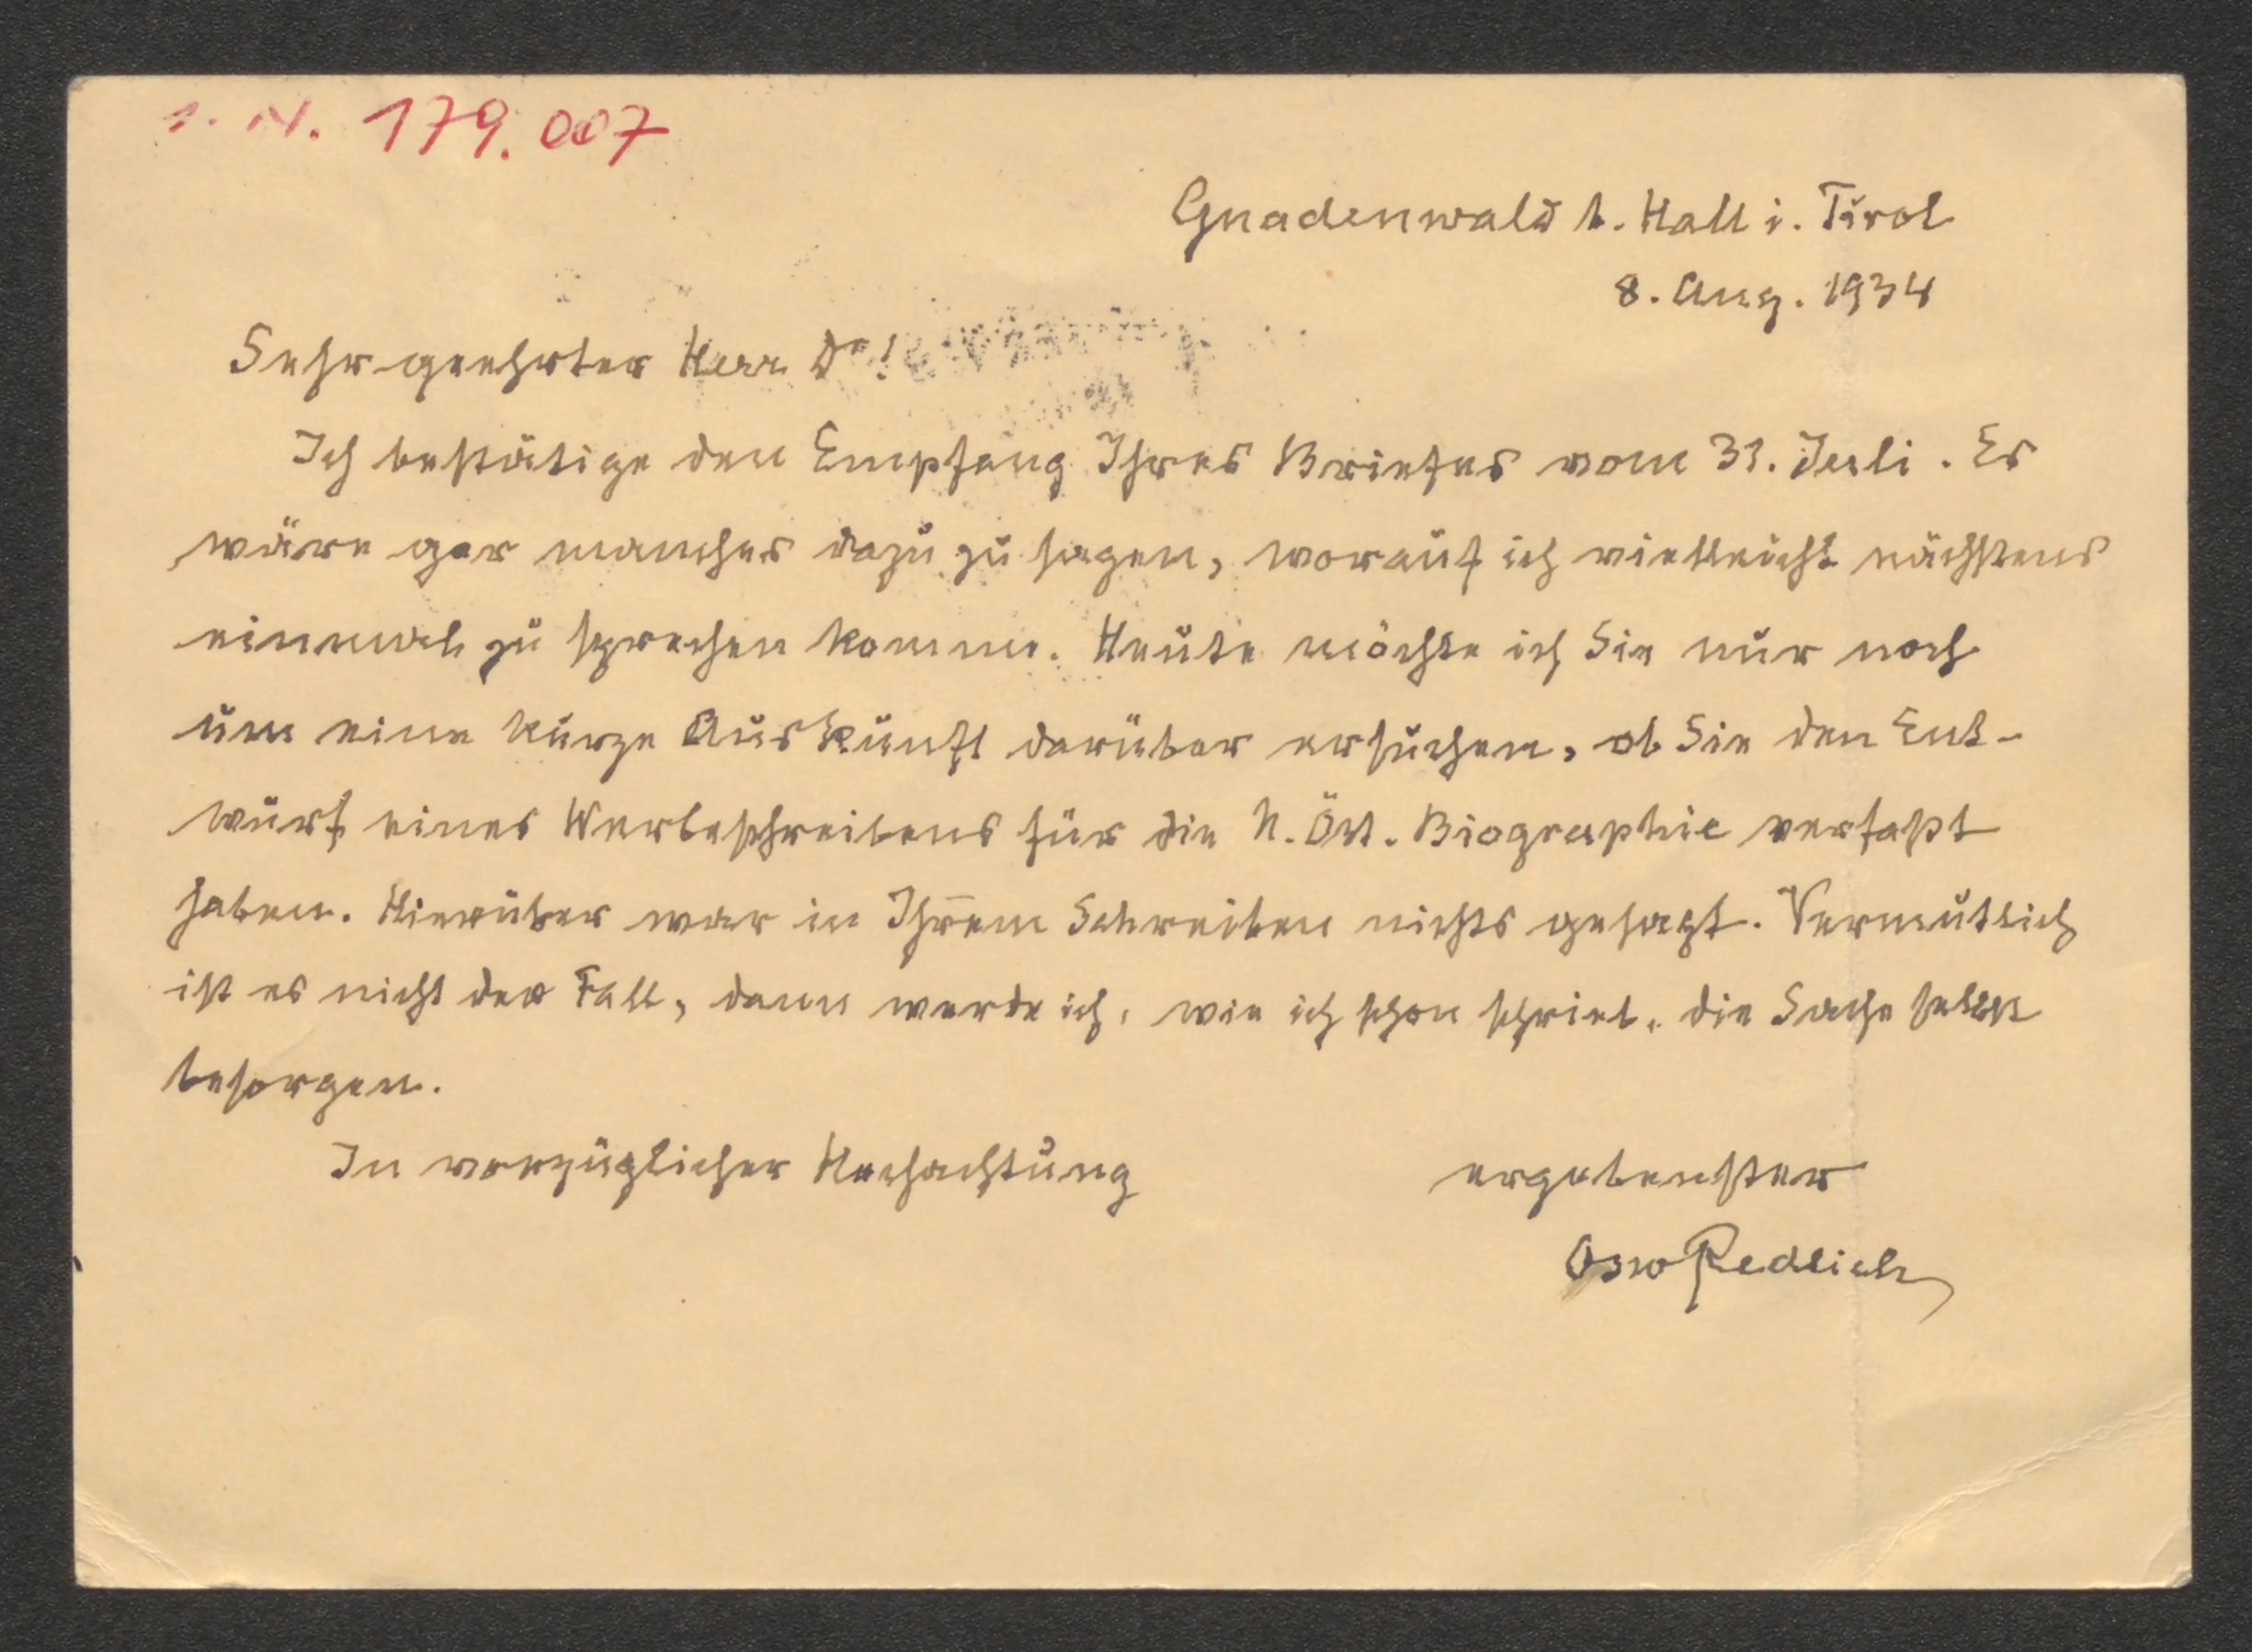 I. N. 179.007
Gnadenwald b. Hall i. Tirol
8. Aug. 1934
Sehr geehrter Herr Dr!
Ich bestätige den Empfang Ihres Briefes vom 31. Juli. Es
wäre gar manches dazu zu sagen, worauf ich vielleicht nächstens
einmal zu sprechen komme. Heute möchte ich Sie nur noch
um eine kurze Auskunft darüber ersuchen, ob Sie den Ent-
wurf eines Werbeschreibens für die N. Öst. Biographie verfaßt
haben. Hierüber war in Ihrem Schreiben nichts gesagt. Vermutlich
ist es nicht der Fall, dann werde ich, wie ich schon schrieb, die Sache selbst
besorgen.
In vorzüglicher Hochachtung
ergebenster
Osw Redlich